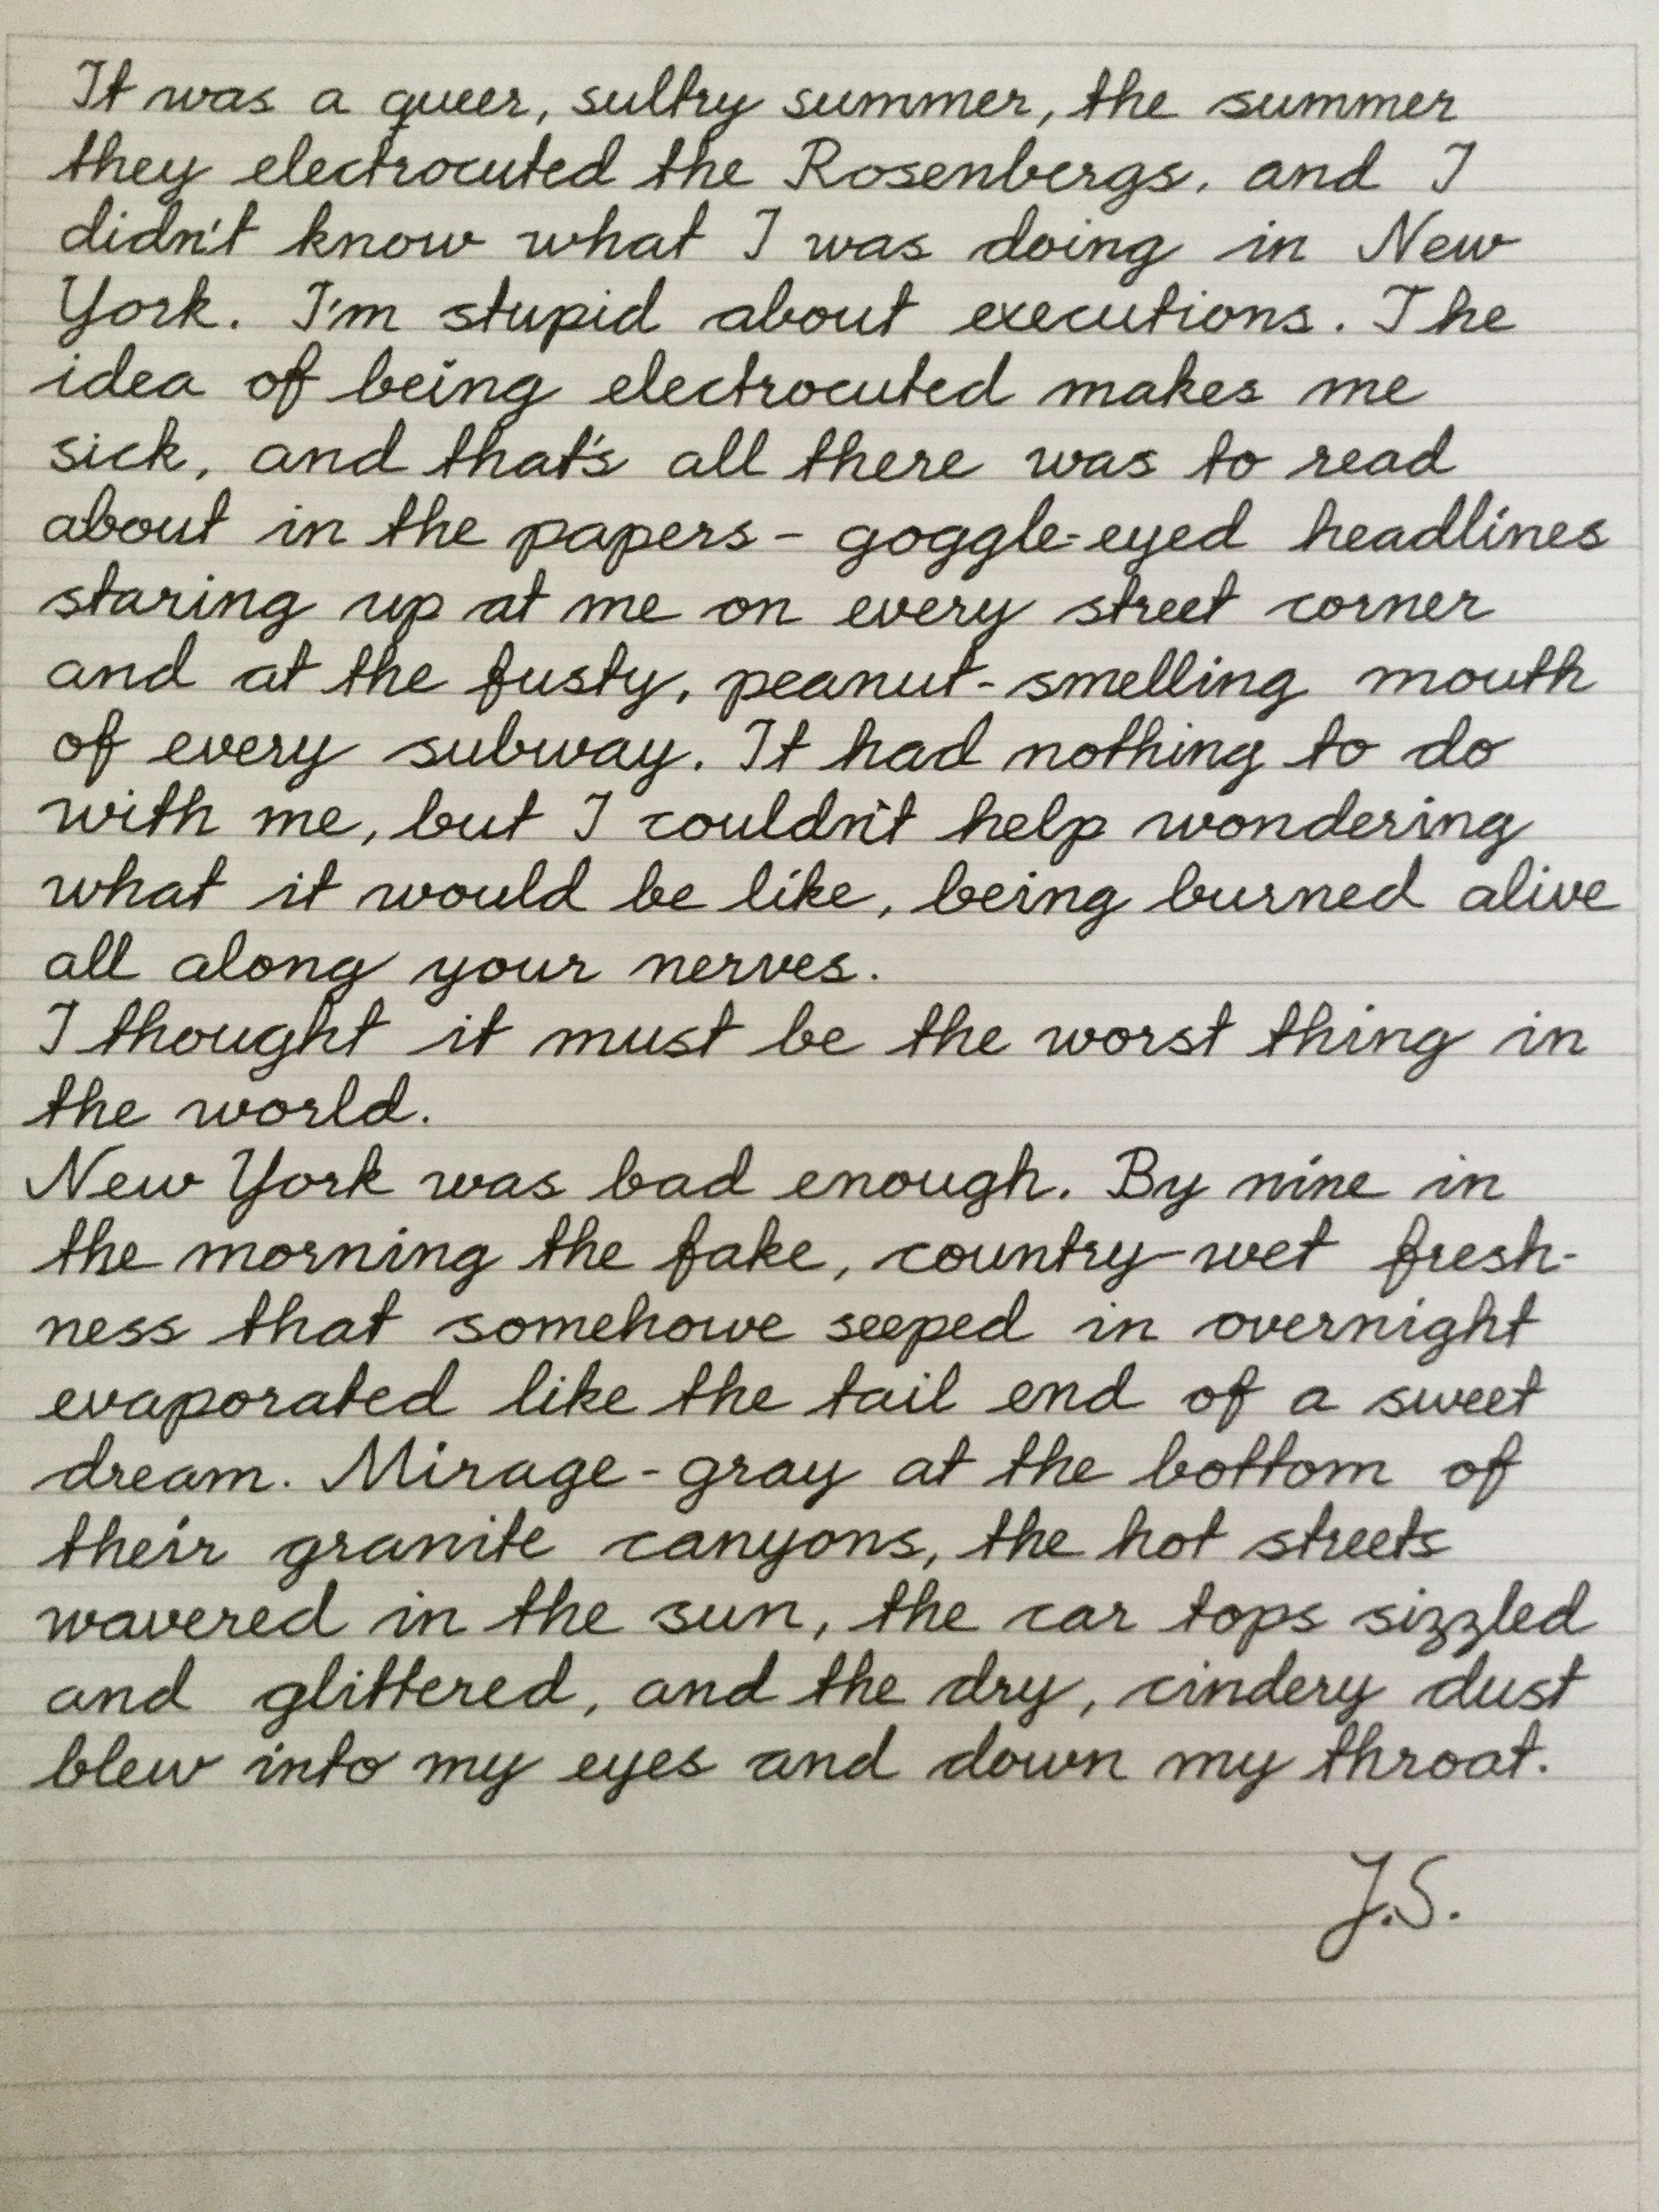 It was a queer, sultry summer, the summer
they electrocuted the Rosenbergs, and I
didn't know what I was doing in New
York. I'm stupid about executions. The
idea of being electrocuted makes me
sick, and that's all there was to read
about in the papers - goggle-eyed headlines
staring up at me on every street corner
and at the fusty, peanut-smelling mouth
of every subway. It had nothing to do
with me, but I couldn't help wondering
what it would be like, being burned alive
all along your nerves.
I thought it must be the worst thing in
the world.
New York was bad enough. By nine in
the morning the fake, country-wet fresh-
ness that somehowe seeped in overnight
evaporated like the tail end of a sweet
dream. Mirage-gray at the bottom of
their granite canyons, the hot streets
wavered in the sun, the car tops sizzled
and glittered, and the dry, cindery dust
blew into my eyes and down my throat.
J.S.